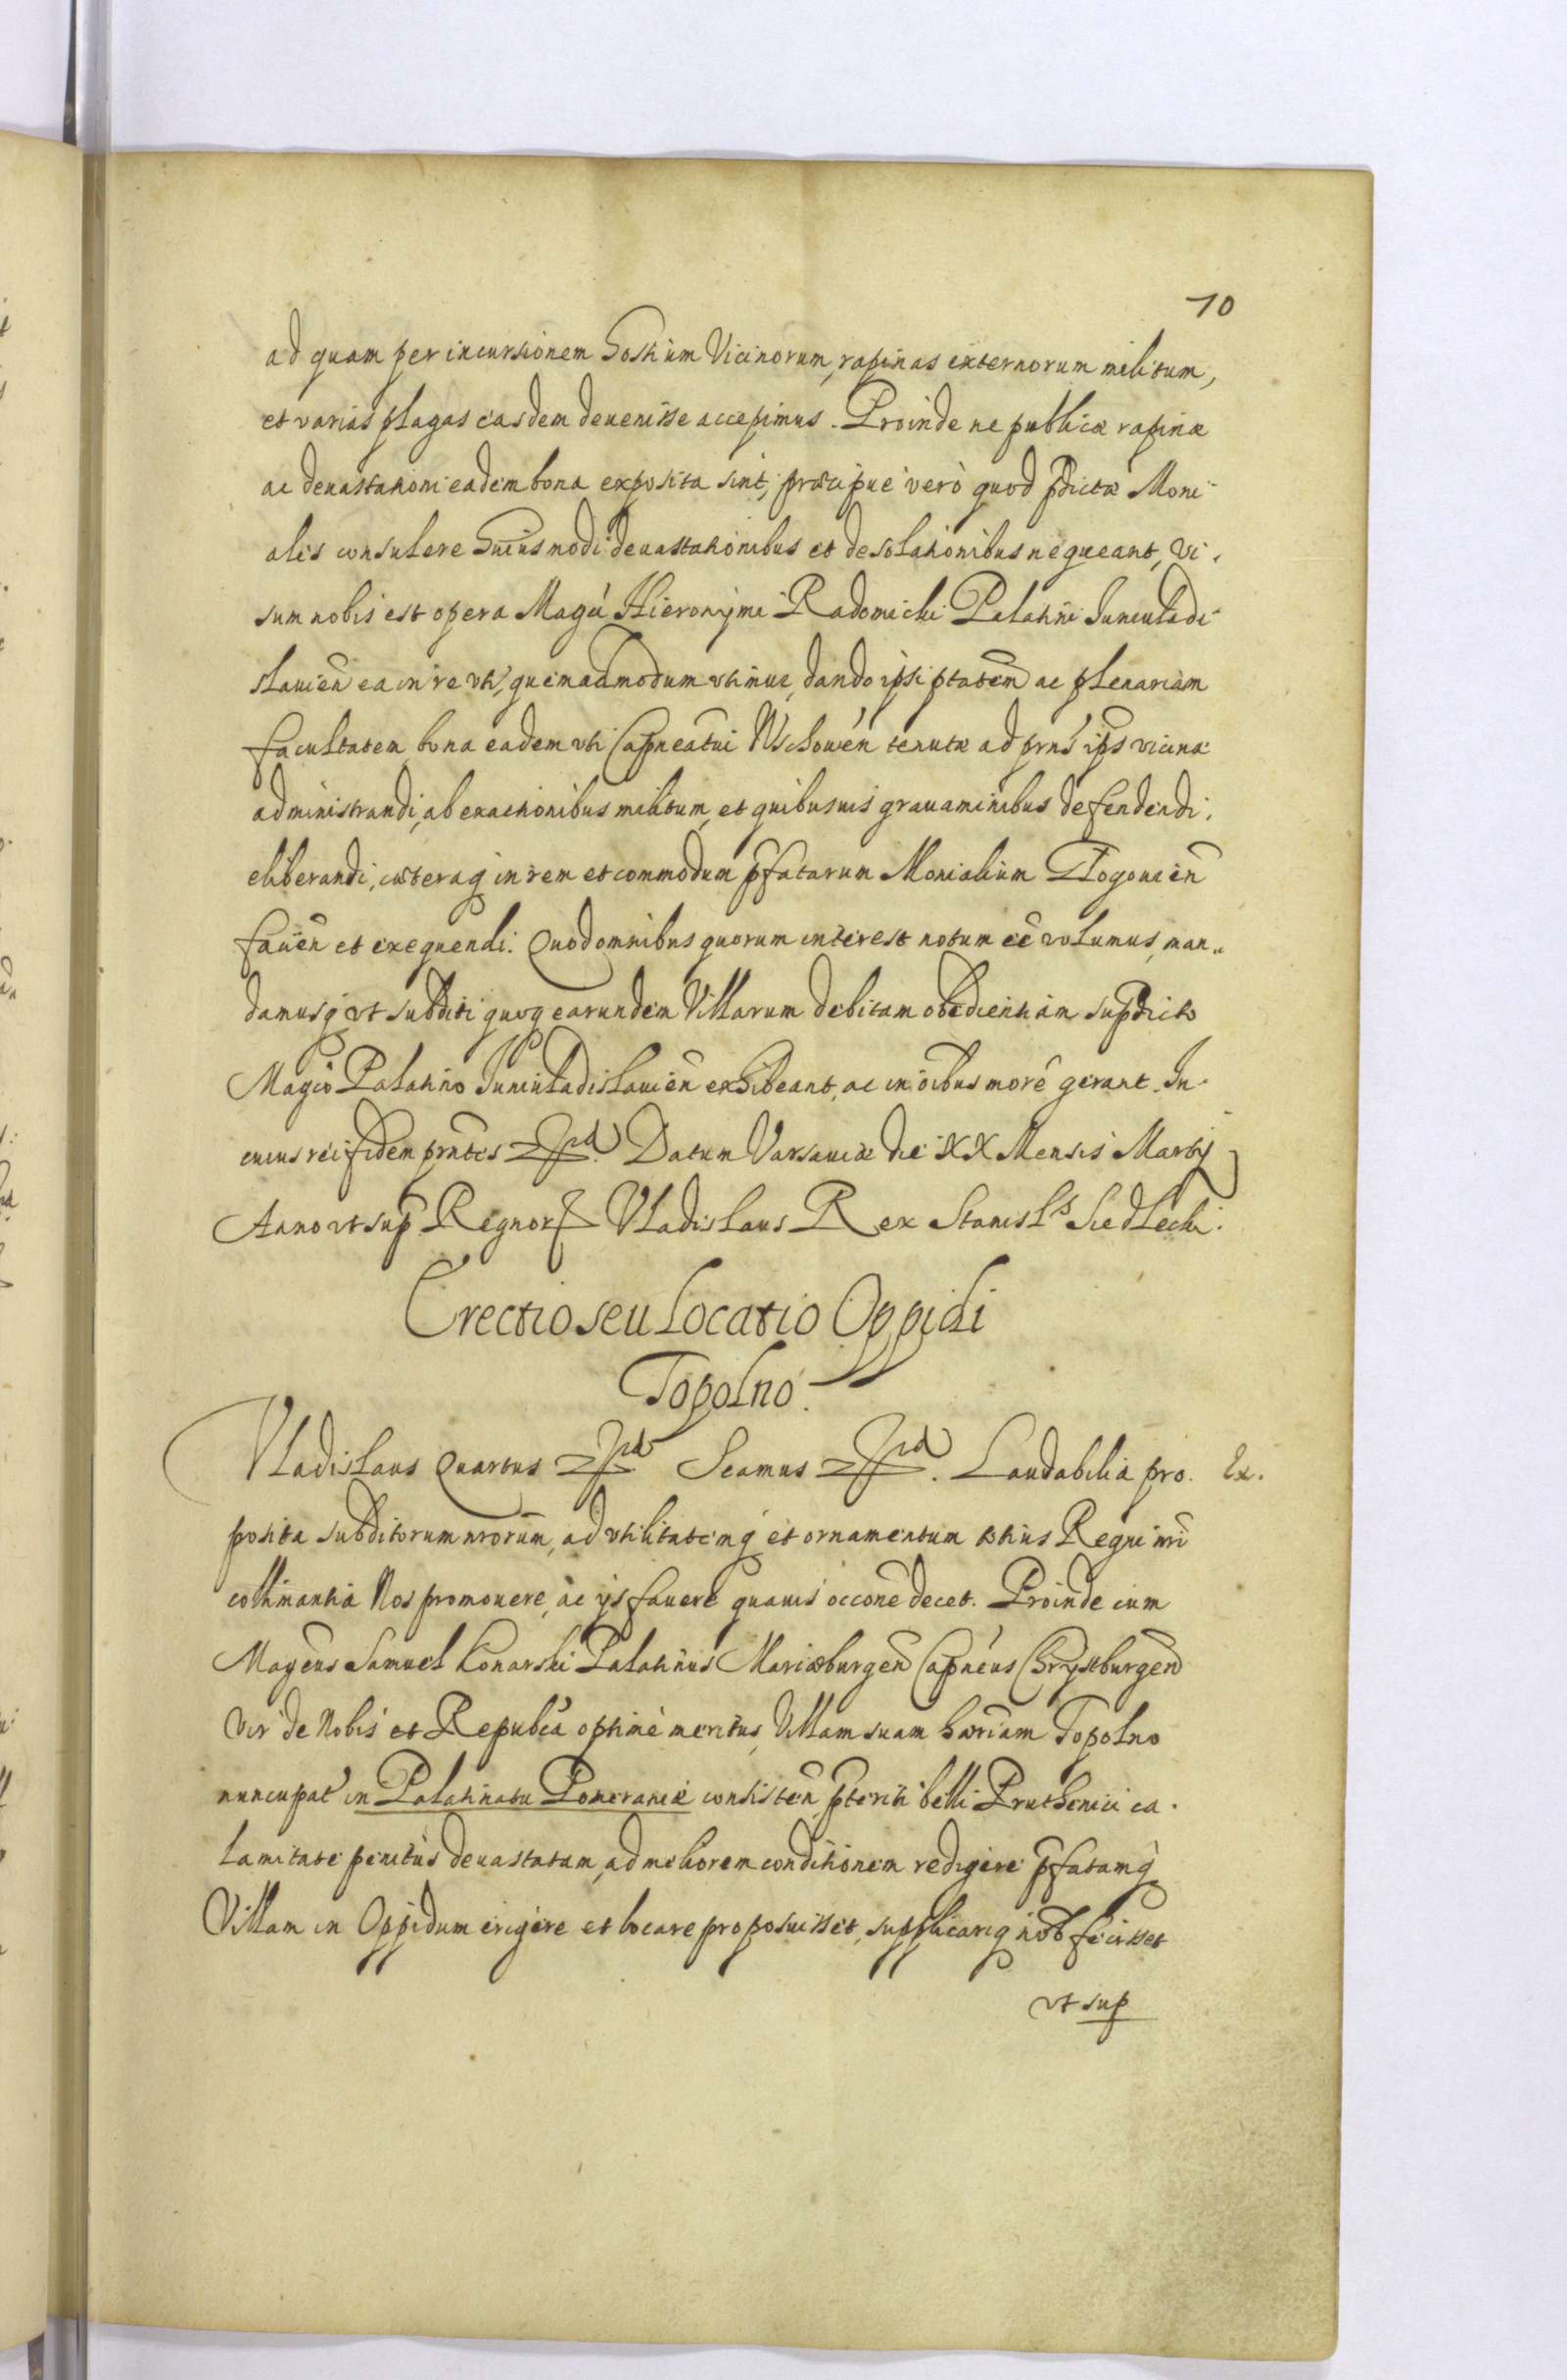 10
ad quam per incursionem hostium Vicinorum, rapinas externorum militum,
et varias plagas easdem devenisse accepimus. Proinde ne publicæ rapinæ
ac devastationi eadem bona exposita sint, præcipue verò quod pdictæ Moni-
ales consulere huiusmodi devastationibus et desolationibus nequeant, Vi-
sum nobis est opera Magci Hieronymi Radomicki Palatini Juniuladi-
slavien ea in re uti, quemadmodum utimur, dando ipsi ptatem ac plenariam
facultatem bona eadem uti Capneatui Wschowen tenutæ ad prns ips vicina
administrandi, ab exactionibus militum, et quibusuis gravaminibus defendendi,
eliberandi, cæteraq in rem et commodum pfatarum Monialium Glogovien
facien et exequendi. Quod omnibus quorum interest notum ee volumus, man-
damusq ut subditi quoq earundem Villarum debitam obedientiam supdicto
Magco Palatino Juniuladislavien exhibeant, ac in oibus more gerant. In
cuius rei fidem prntes Datum Varsaviæ die XX Mensis Martij
Anno ut sup Regnor Vladislaus Rex Stanisls Siedlecki.
Erectio seu Locatio Oppidi
Topolno.
Vladislaus Quartus Scamus Laudabilia pro. Ex.
posita subditorum nrorum, ad utilitatemq et ornamentum totius Regni nri
collimantia Nos promovere, ac ijs favere quavis occone decet. Proinde cum
Magcus Samuel Konarski Palatinus Mariæburgen Capneus Chrystburgen
Vir de Nobis et Republca optimè meritus, Villam suam hæriam Topolno
nuncupat in Palatinatu Pomeraniæ consisten, pteriti belli Pruthenici ca-
lamitate penitùs devastatam, ad meliorem conditionem redigere pfatamq
Villam in Oppidum erigere et locare proposuisset, supplicariq nob fecisset
ut sup